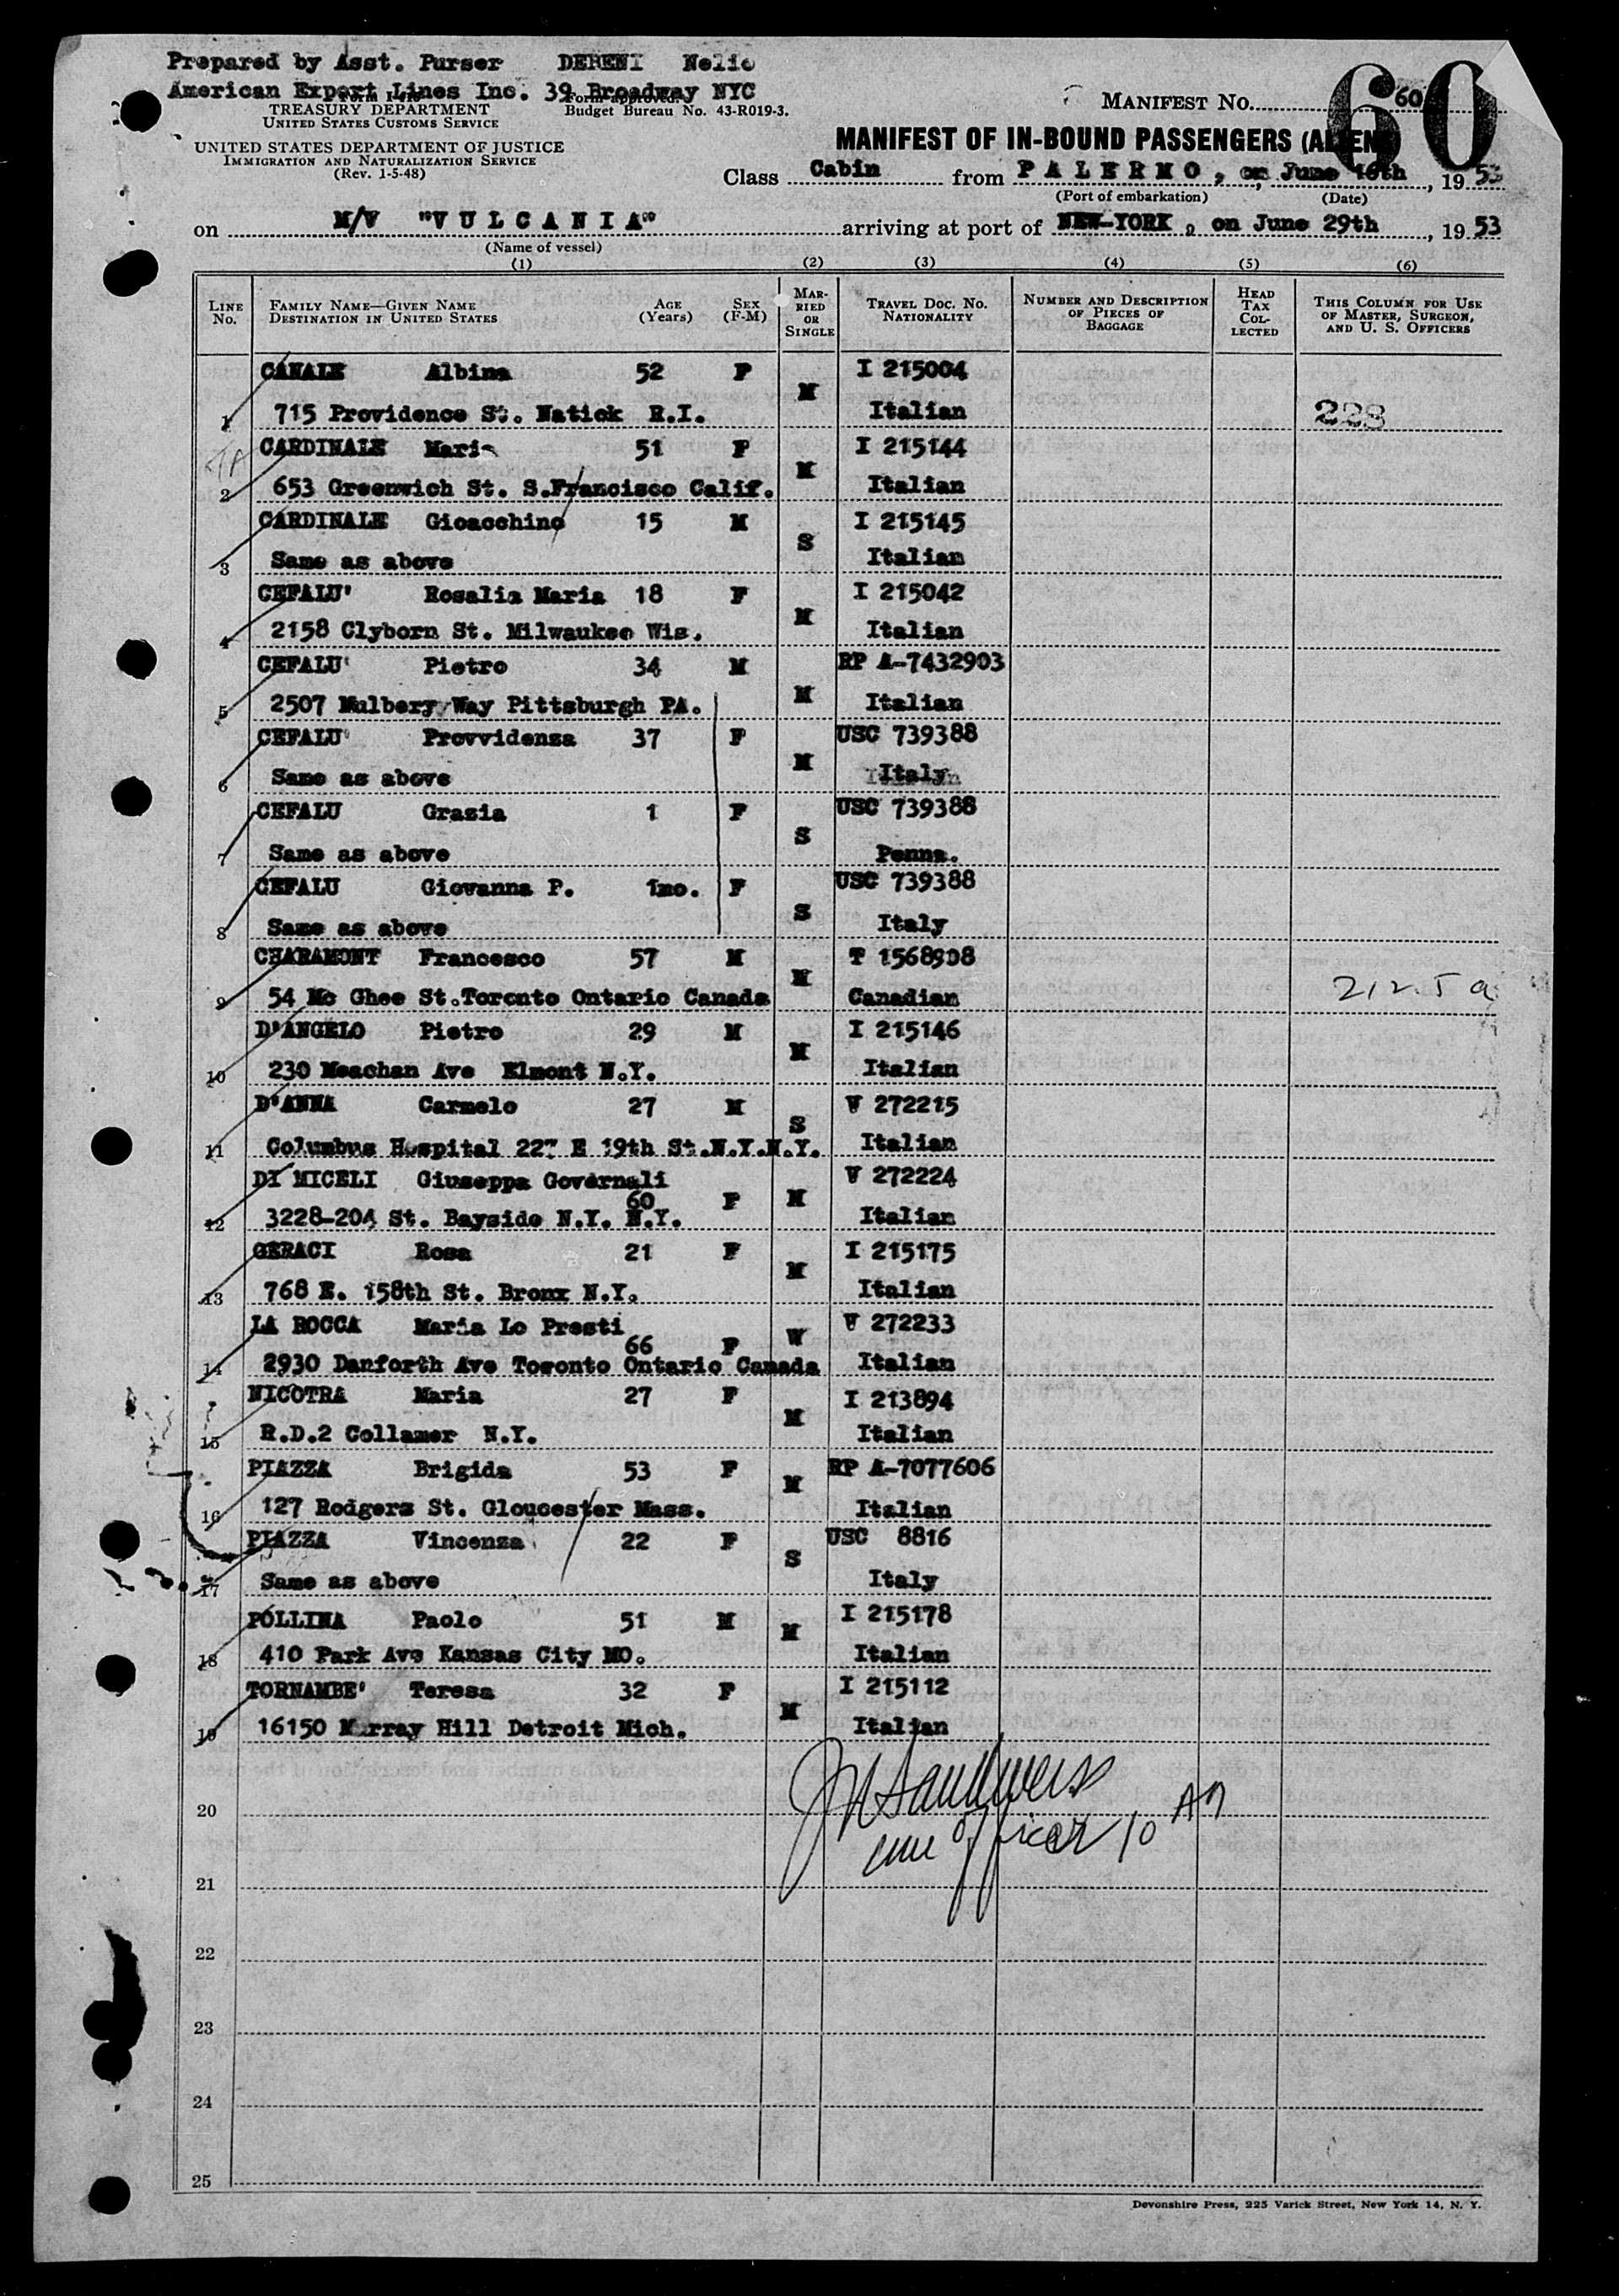 Prepared by Asst. Purser DERENI Nelio
American Export Lines Inc. 39 Broadway NYC
TREASURY DEPARTMENT
UNITED STATES CUSTOMS SERVICE
Form approved.
Budget Bureau No. 43-R019-3.
UNITED STATES DEPARTMENT OF JUSTICE
IMMIGRATION AND NATURALIZATION SERVICE
(Rev. 1-5-48)
MANIFEST NO. 60
60
MANIFEST OF IN-BOUND PASSENGERS (ALIEN)
Class Cabin from PALERMO, on June 18th, 1953
(Port of embarkation) (Date)
on M/V "VULCANIA" arriving at port of NEW-YORK, on June 29th, 1953
(Name of vessel)
(1) (2) (3) (4) (5) (6)
LINE No. FAMILY NAME—GIVEN NAME DESTINATION IN UNITED STATES AGE (Years) SEX (F-M) MARRIED OR SINGLE TRAVEL DOC. NO. NATIONALITY NUMBER AND DESCRIPTION OF PIECES OF BAGGAGE HEAD TAX COLLECTED THIS COLUMN FOR USE OF MASTER, SURGEON, AND U. S. OFFICERS
CANALE Albina 52 F M I 215004
1 715 Providence St. Natick R.I. Italian 228
CARDINALE Maria 51 F M I 215144
2 653 Greenwich St. S.Francisco Calif. Italian
CARDINALE Gioacchino 15 M S I 215145
3 Same as above Italian
CEFALU' Rosalia Maria 18 F M I 215042
4 2158 Clyborn St. Milwaukee Wis. Italian
CEFALU' Pietro 34 M M RP A-7432903
5 2507 Mulbery Way Pittsburgh PA. Italian
CEFALU' Provvidenza 37 F M USC 739388
6 Same as above Italy
CEFALU Grazia 1 F S USC 739388
7 Same as above Penna.
CEFALU Giovanna P. 1mo. F S USC 739388
8 Same as above Italy
CHARAMONT Francesco 57 M M T 1568908
9 54 Mc Ghee St.Toronto Ontario Canada Canadian 212.5a
D'ANGELO Pietro 29 M M I 215146
10 230 Meachan Ave Elmont N.Y. Italian
D'ANNA Carmelo 27 M S V 272215
11 Columbus Hospital 227 E 19th St.N.Y.N.Y. Italian
DI MICELI Giuseppa Governali 60 F M V 272224
12 3228-204 St. Bayside N.Y. N.Y. Italian
GERACI Rosa 21 F M I 215175
13 768 E. 158th St. Bronx N.Y. Italian
LA ROCCA Maria Lo Presti 66 F W V 272233
14 2930 Danforth Ave Toronto Ontario Canada Italian
NICOTRA Maria 27 F M I 213894
15 R.D.2 Collamer N.Y. Italian
PIAZZA Brigida 53 F M RP A-7077606
16 127 Rodgers St. Gloucester Mass. Italian
PIAZZA Vincenza 22 F S USC 8816
17 Same as above Italy
POLLINA Paolo 51 M M I 215178
18 410 Park Ave Kansas City MO. Italian
TORNAMBE' Teresa 32 F M I 215112
19 16150 Murray Hill Detroit Mich. Italian
20
officer 10 AM
21
22
23
24
25
Devonshire Press, 225 Varick Street, New York 14, N. Y.